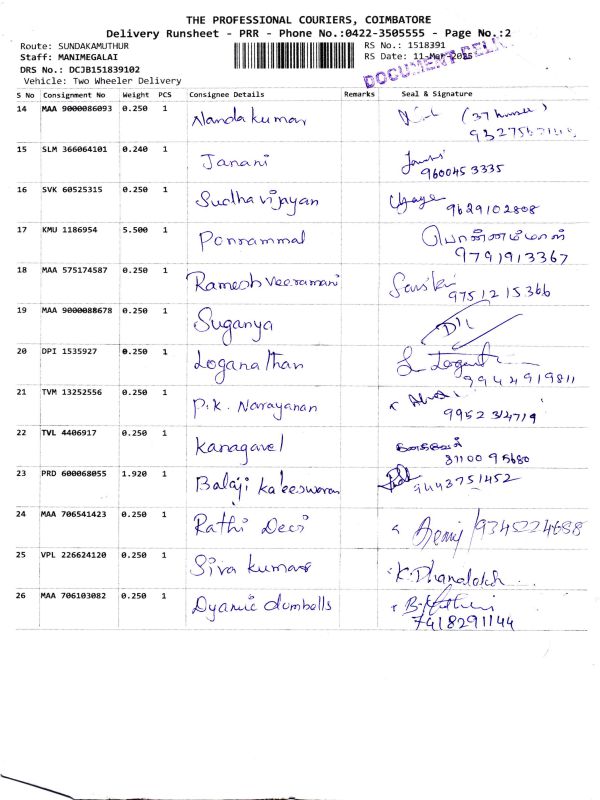 THE PROFESSIONAL COURIERS, COIMBATORE
Delivery Runsheet - PRR - Phone No.:0422-3505555 - Page No.:2
Route: SUNDAKAMUTHUR RS No.: 1518391
Staff: MANIMEGALAI RS Date: 11-Mar-2025
DRS No.: DCJB151839102
Vehicle: Two Wheeler Delivery
S No Consignment No Weight PCS Consignee Details Remarks Seal & Signature
14 MAA 9000086093 0.250 1 Nandakumar (37
15 SLM 366064101 0.240 1 Janani
9600453335
16 SVK 60525315 0.250 1 Sudha vijayan
9629102808
17 KMU 1186954 5.500 1 Ponnammal பொன்னம்மாள்
9791913367
18 MAA 575174587 0.250 1 Ramesh veeramani
9751215366
19 MAA 9000088678 0.250 1 Suganya
20 DPI 1535927 0.250 1 Loganathan
9944919811
21 TVM 13252556 0.250 1 P.K. Narayanan
22 TVL 4406917 0.250 1 Kanagavel
23 PRD 600068055 1.920 1 Balaji kaleeswaran
9443751452
24 MAA 706541423 0.250 1 Rathi Devi 9345224688
25 VPL 226624120 0.250 1 Siva kumar K. Dhanalaksh
26 MAA 706103082 0.250 1 Dyanic dumbells
7418291144